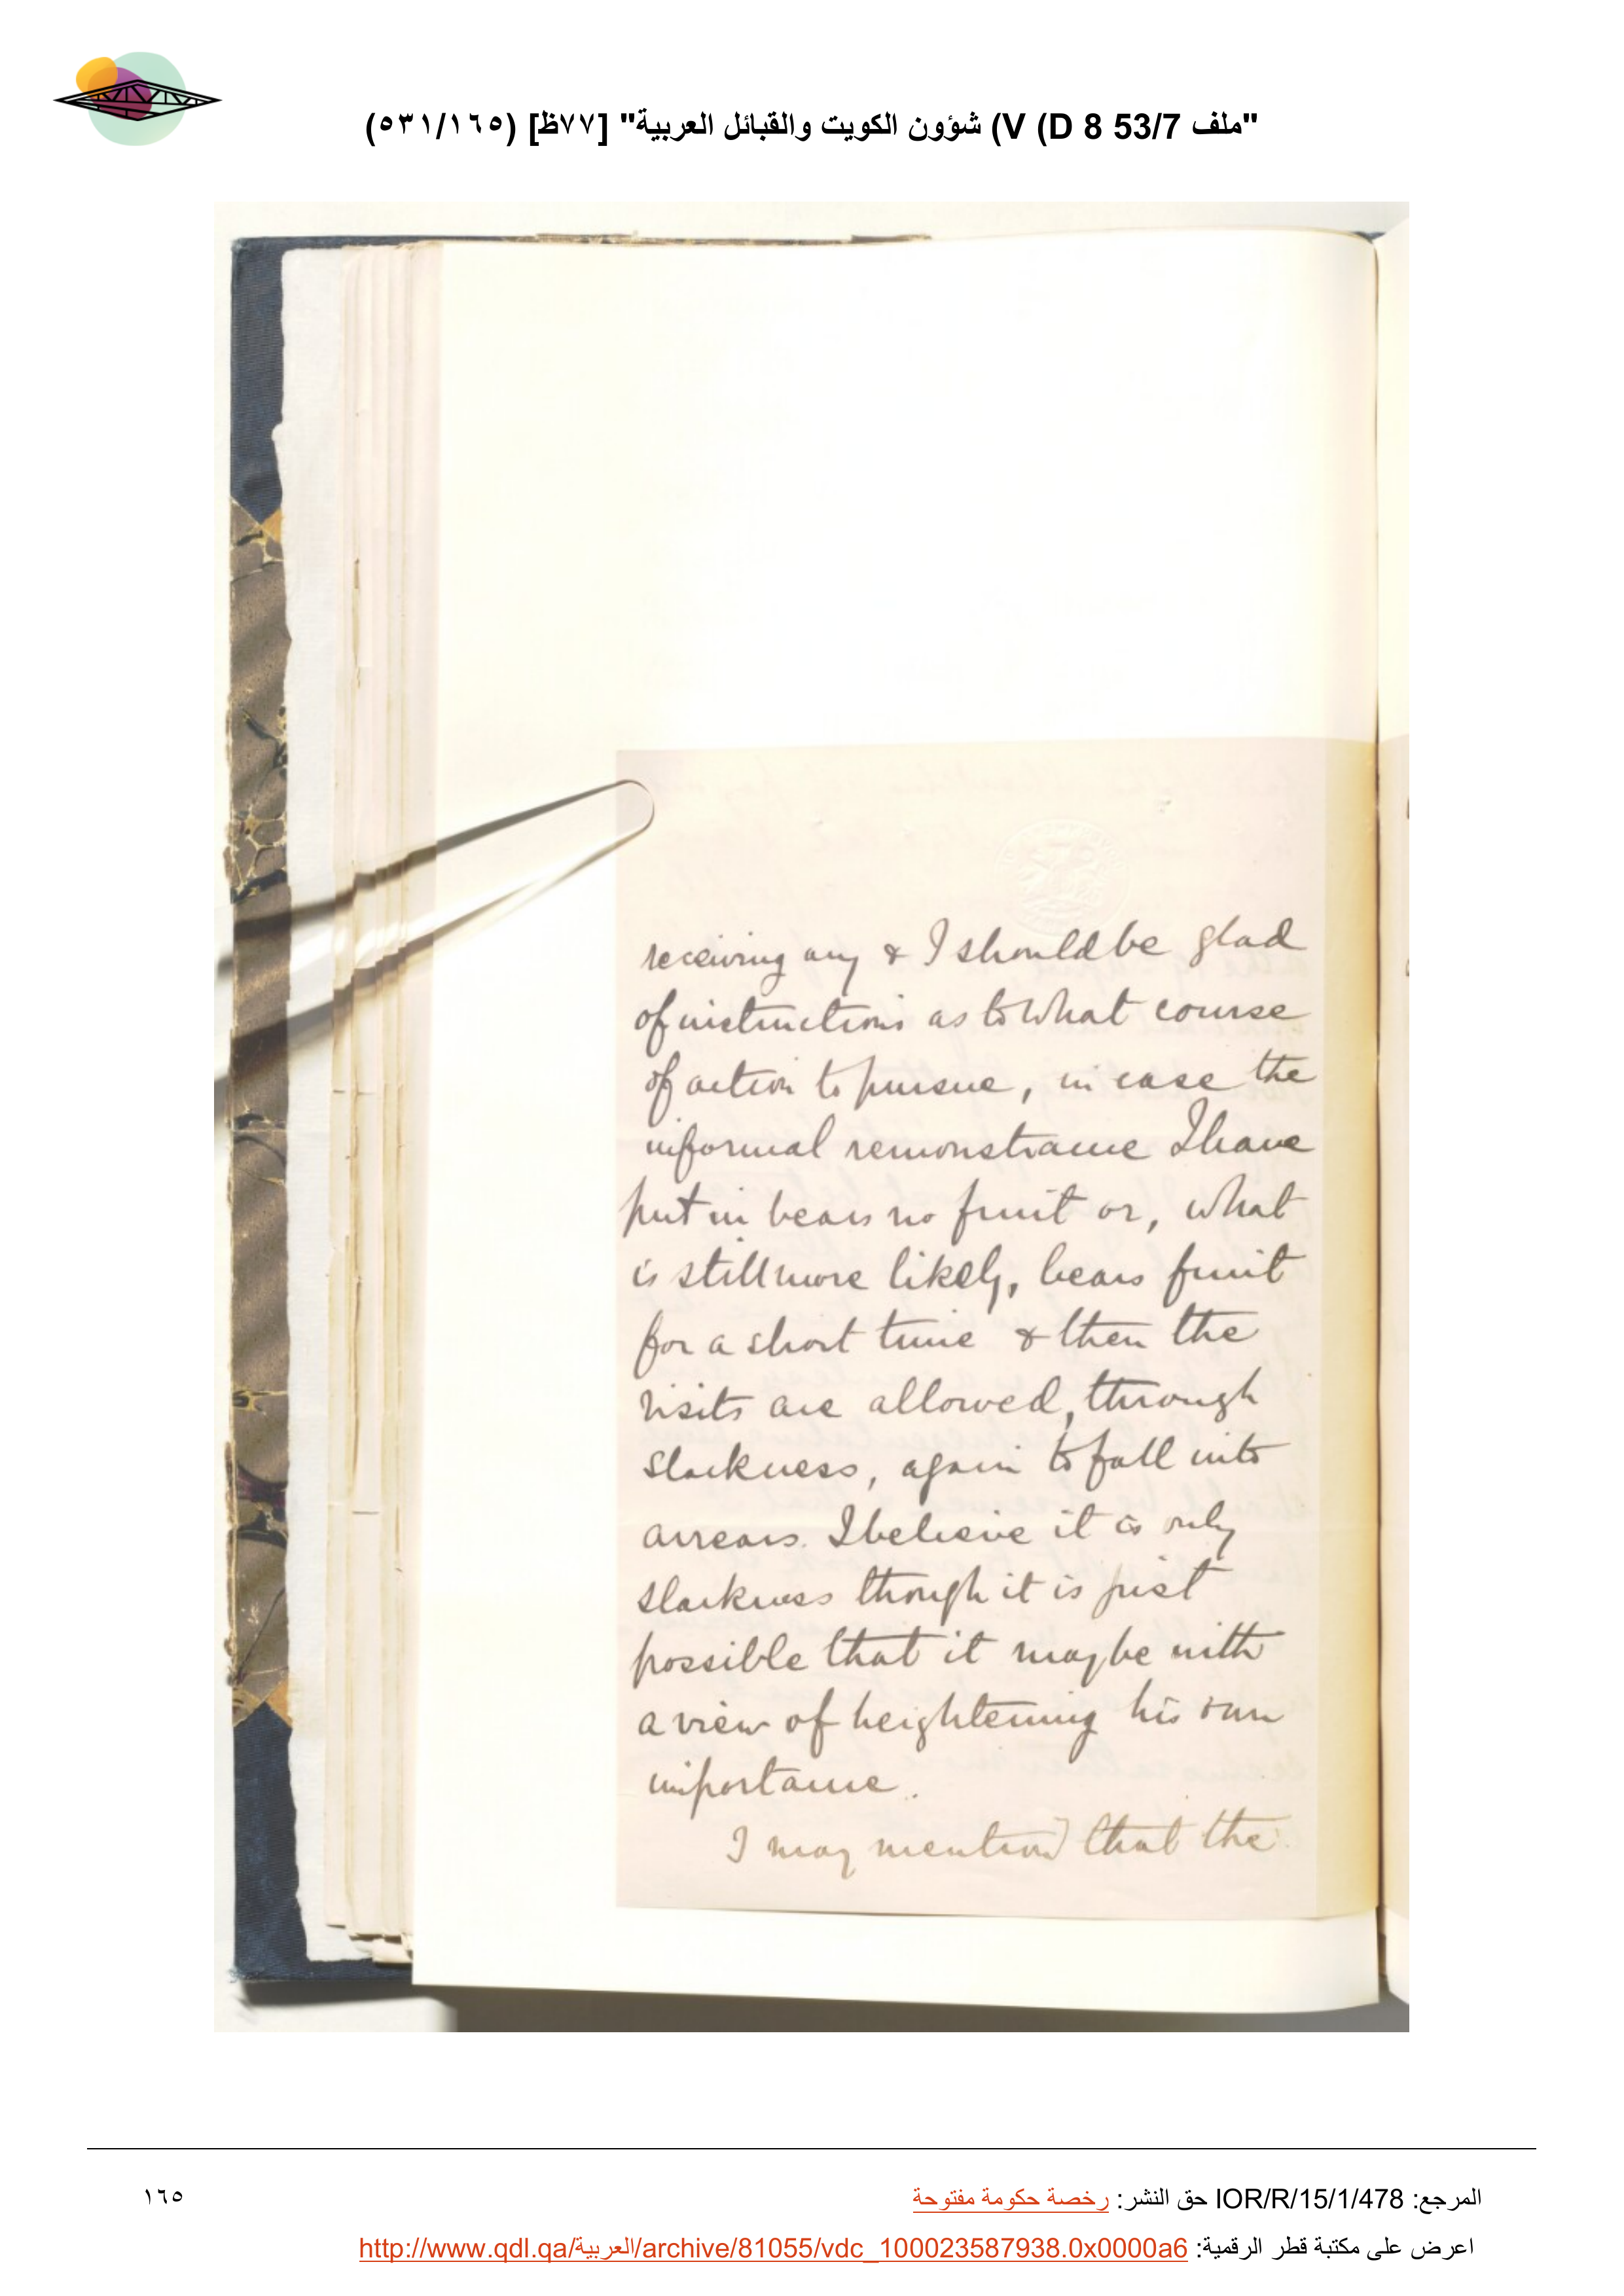 "ملف 53/7 V (D 8) شؤون الكويت والقبائل العربية" [٧٧ظ] (٥٣١/١٦٥)
receiving any & I should be glad
of instructions as to what course
of action to pursue, in case the
informal remonstrance I have
put in bears no fruit or, what
is still more likely, bears fruit
for a short time & then the
visits are allowed, through
slackness, again to fall into
arrears. I believe it is only
slackness though it is just
possible that it may be with
a view of heightening his own
importance.
I may mention that the
المرجع: IOR/R/15/1/478 حق النشر: رخصة حكومة مفتوحة
١٦٥
اعرض على مكتبة قطر الرقمية: http://www.qdl.qa/العربية/archive/81055/vdc_100023587938.0x0000a6